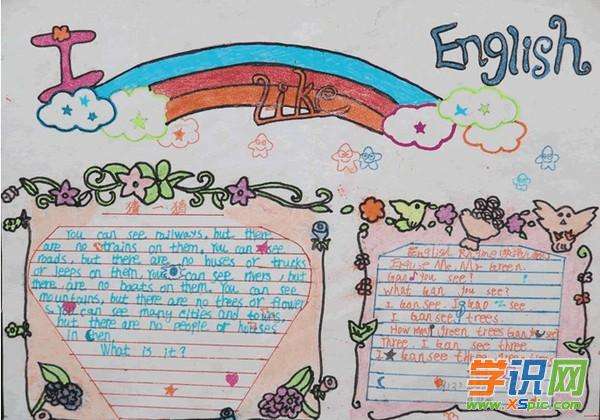 I Like English
猜一猜
You can see railways, but there
are no trains on them. You can see
roads, but there are no buses or trucks
or jeeps on them. You can see rivers, but
there are no boats on them. You can see
mountains, but there are no trees or flower
s. You can see many cities and towns,
but there are no people or houses
in them.
What is it?
English Rhyme
Me Mr Green.
Can you see?
What can you see?
I can see. I can see
I can see trees.
How many green trees can you see
Three. I can see three.
I can see three
学识网
www.xspic.com